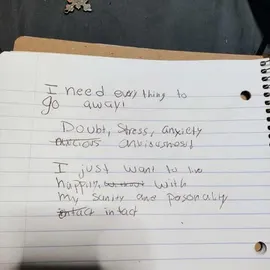 I need everything to
go away!
Doubt, Stress, anxiety
anxiousness!
I just want to live
happily with
my sanity and personality
intact intact